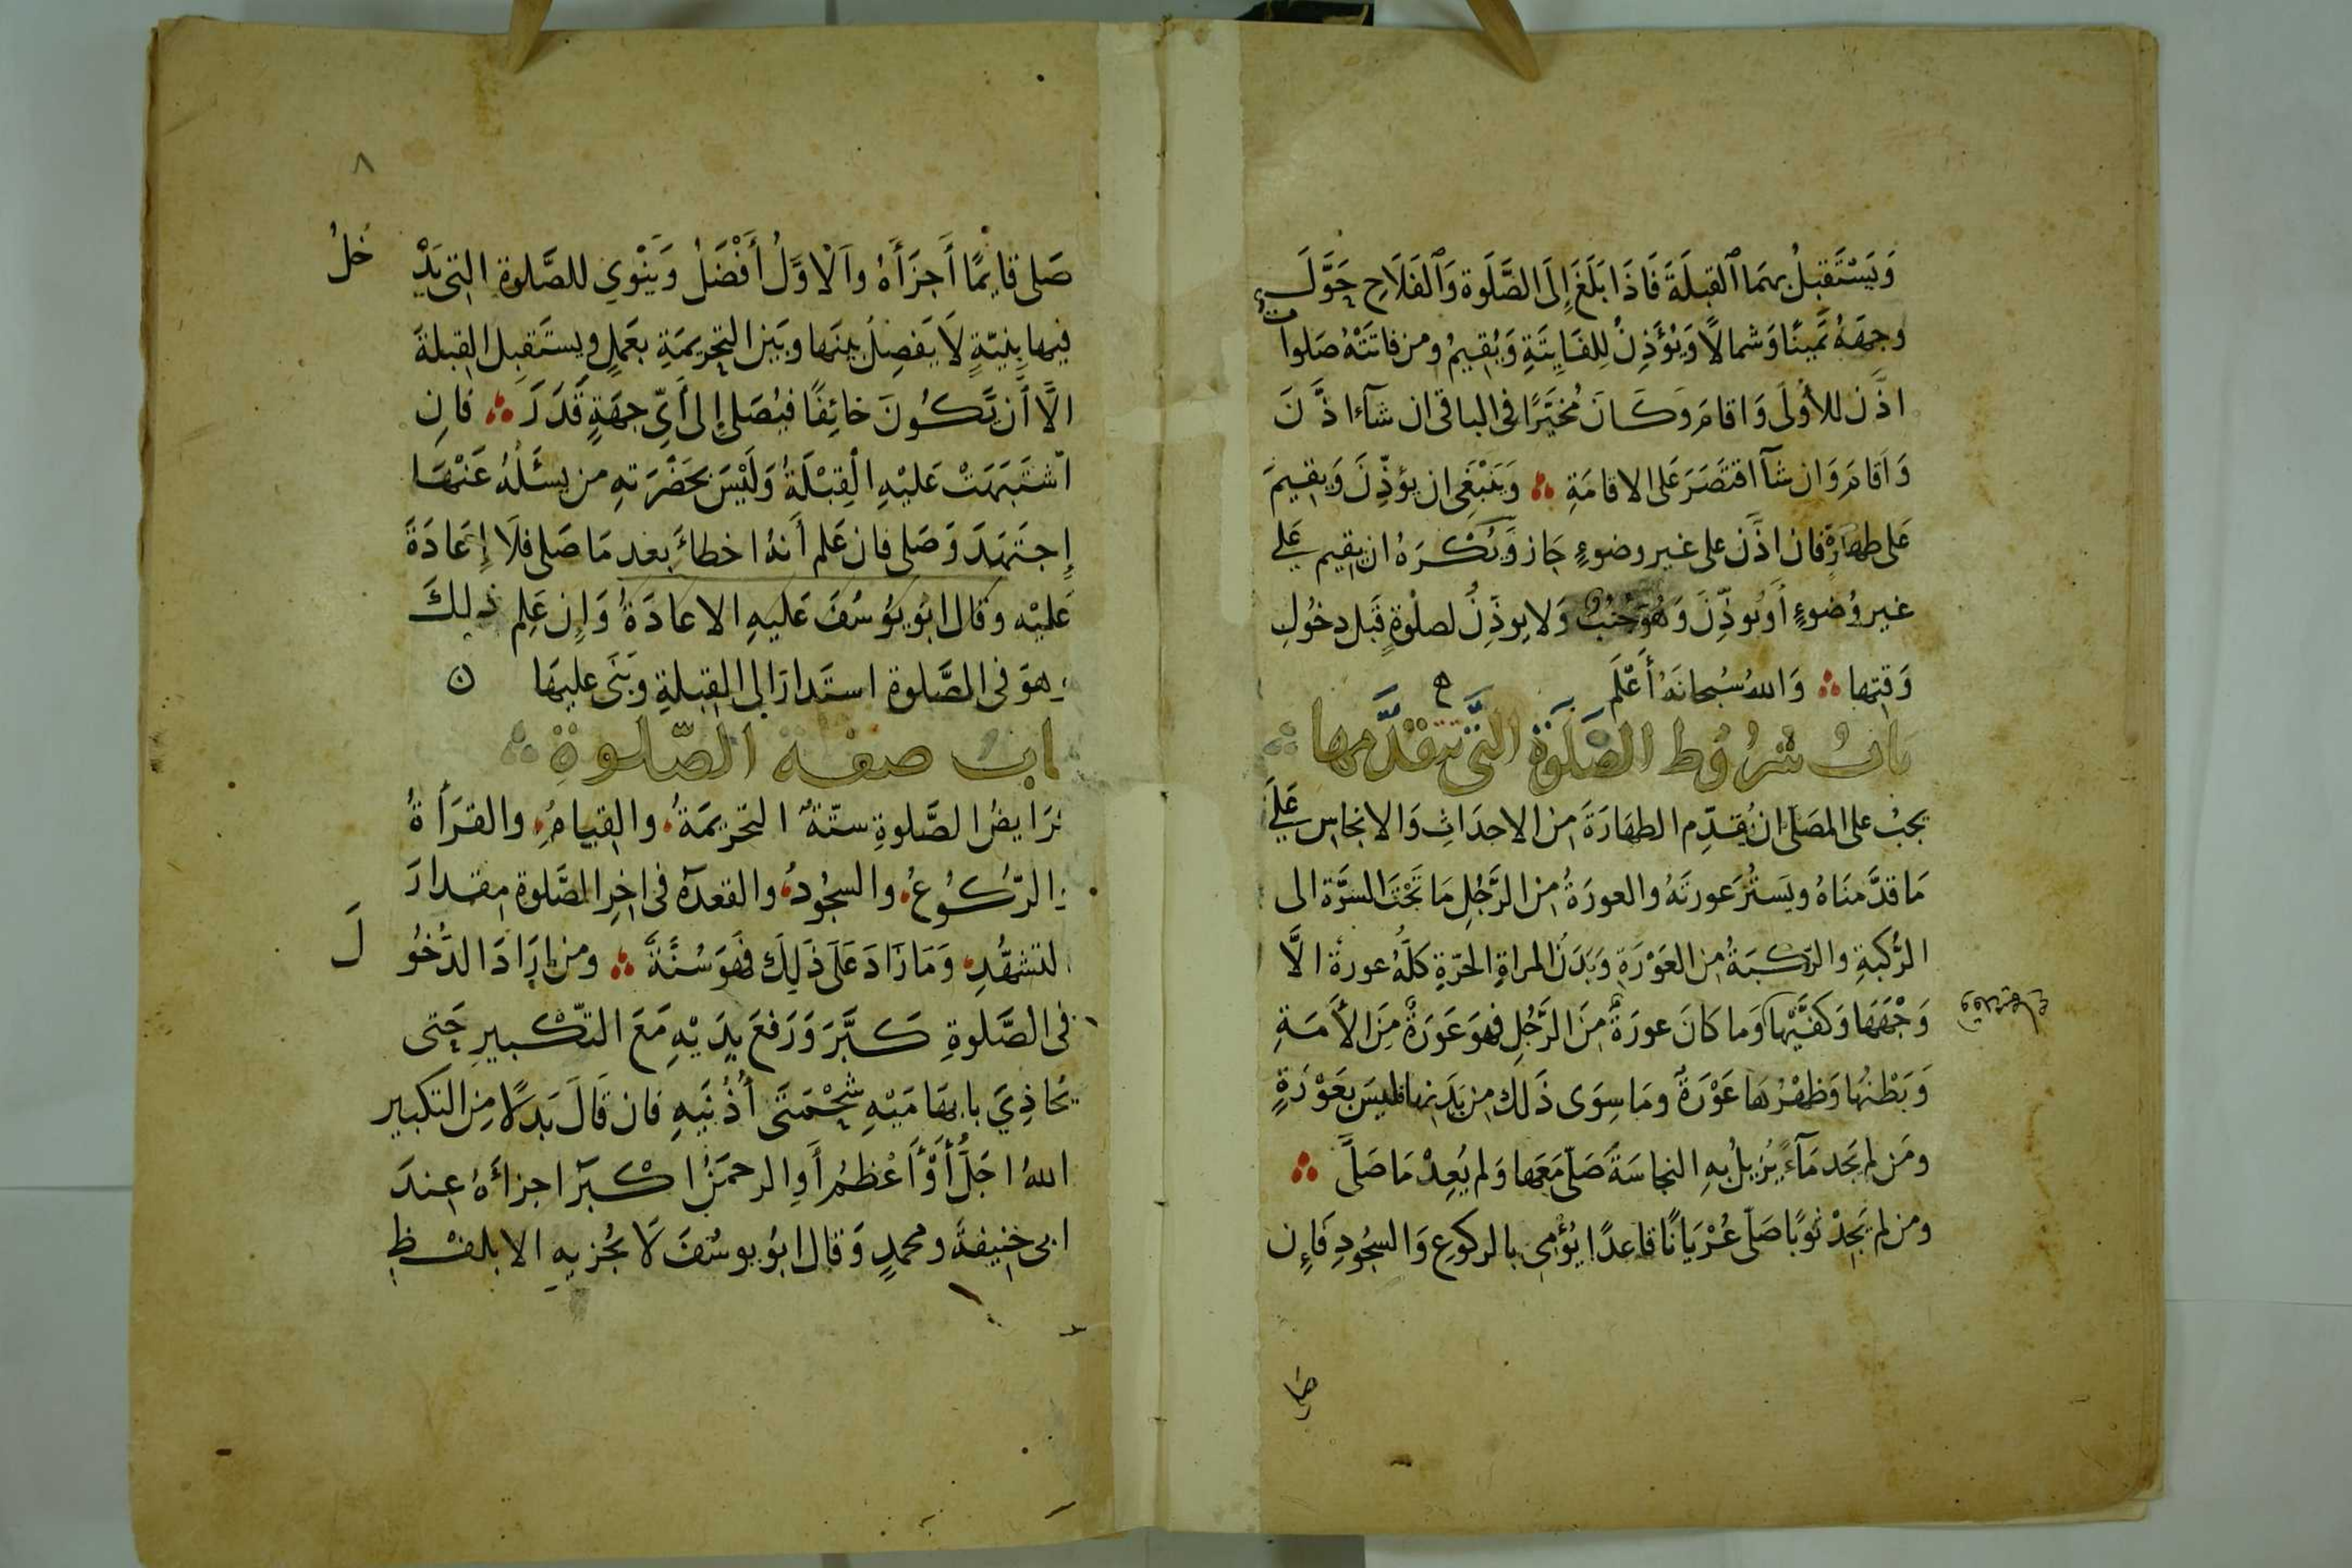 وَيَسْتَقبِلُ بهمَا ٱلقِبلَةَ فَاذَا بَلَغَ إِلَى الصَّلَوة وَٱلفَلَاحِ حَوَّلَ
وجهَهُ يَمينًا وَشمالًا وَيُؤَذِنُ لِلفَايِتَةِ وَيُقيمُ ومن فاتَتْهُ صَلوات
اذَّن للأُولَى وَاقامَ وَكَانَ مُخيَّرًا فى الباقى ان شآءَ اذَّنَ
وَاَقامَ وَان شآ اقتَصَرَ عَلى الاقامَةِ ۞ وَيَنْبَغِى ان يؤذِّنَ وَيقيمَ
عَلى طهَارَةٍ فان اذَّن على غير وضوءٍ جَاز وَيُكْرَهُ ان يقيم عَلى
غير وُضوءٍ أَو يُوذِّنَ وَهُوَ جُنُبٌ وَلا يوذِنُ لصلٰوةٍ قَبل دخُولِ
وَقتِها ۞ وَاللهُ سُبحانَهُ أَعْلَم
بابُ شرُوُط الصَّلَوٰة التَّى تتقدَّمها
يجبُ على المصَلى ان يُقدِّم الطهَارَةَ من الاحدَاثِ وَالانجَاسِ عَلَى
مَا قدَّمنَاهُ ويَستُرَ عورتَهُ والعورَةُ من الرَّجُلِ مَا تَحْتَ السرَّة الى
الرُّكبَةِ والرّكبَةُ من العَوْرَةِ وَبَدَنُ المراةِ الحرّةِ كلّهُ عورةٌ الَّا
وَجْهَهَا وَكفَّيْهَا وَما كانَ عورَةً مِنَ الرَّجُلِ فهوَ عَورَةٌ مِنَ الأَمَةِ
وَبَطْنُها وَظهْرُهَا عَوْرَةٌ ومَا سِوَى ذَلك من بَدَنها فليسَ بعَوْرَةٍ
ومَن لم يَجد مَآءً يُزيلُ بهِ النجاسَةَ صَلّى مَعَها وَلم يُعِدْ مَا صَلَّى ۞
ومن لم يَجِدْ ثوبًا صَلّى عُرْيَانًا قاعدًا يُؤْمِى بالركوعِ وَالسجُودِ فَإِن
صَلى
٨
صَلى قايمًا أَجزَأَهُ والاوَّلُ أَفْضَلُ وَيَنْوِى للصَّلوة التى يَدْخلُ
فيها بِنيّةٍ لَا يَفصِلُ بينَها وبَين التحريمَةِ بعَملٍ ويستَقبِل القِبلةَ
الَّا أَن يَّكُونَ خائِفًا فيُصَلى إِلى أَىِّ جهَةٍ قَدَرَ ۞ فان
اشتَبَهَتْ عَليْهِ الْقِبْلَةُ وَلَيْسَ بحَضْرَتهِ من يسئَلُهُ عَنْهَا
إِجتَهَدَ وَصَلى فان عَلم أَنهُ اخطاءَ بعد مَا صَلى فلَا إِعَادَةَ
عَليْه وقال ابو يوُسُفَ عَليهِ الاعَادَةُ وَإِن عَلِم ذلِكَ
وهوَ فى الصَّلوة استَدارَ الى القِبلةِ وَبَنَى عليهَا ن
باب صفة الصَّلوة
فرَايضُ الصَّلوةِ ستّةٌ التحريمَةُ والقِيامُ والقرَأةُ
والرّكُوُعُ والسجُودُ والقعدَةُ فى اخِر الصَّلوة مقدارَ
التشهُّدِ وَمَا زَادَ عَلَى ذَلِكَ فهوَ سُنَّةٌ ۞ ومن ارَادَ الدُّخُولَ
فى الصَّلوةِ كَبَّرَ وَرَفعَ يدَيْهِ مَعَ التّكْبيرِ حَتى
يُحَاذِىَ بابهَامَيْهِ شَحْمَتَى أُذُنَيهِ فان قَالَ بَدلًا مِن التكبير
اللهُ اجَلُّ أَوْ أَعْظمُ أَوِ الرحمَنُ اكْبَرُ اجزأهُ عندَ
ابى حنيفةَ ومحمدٍ وَقال ابُو يوسُفَ لَا يجُزيهِ الا بلفْظِ